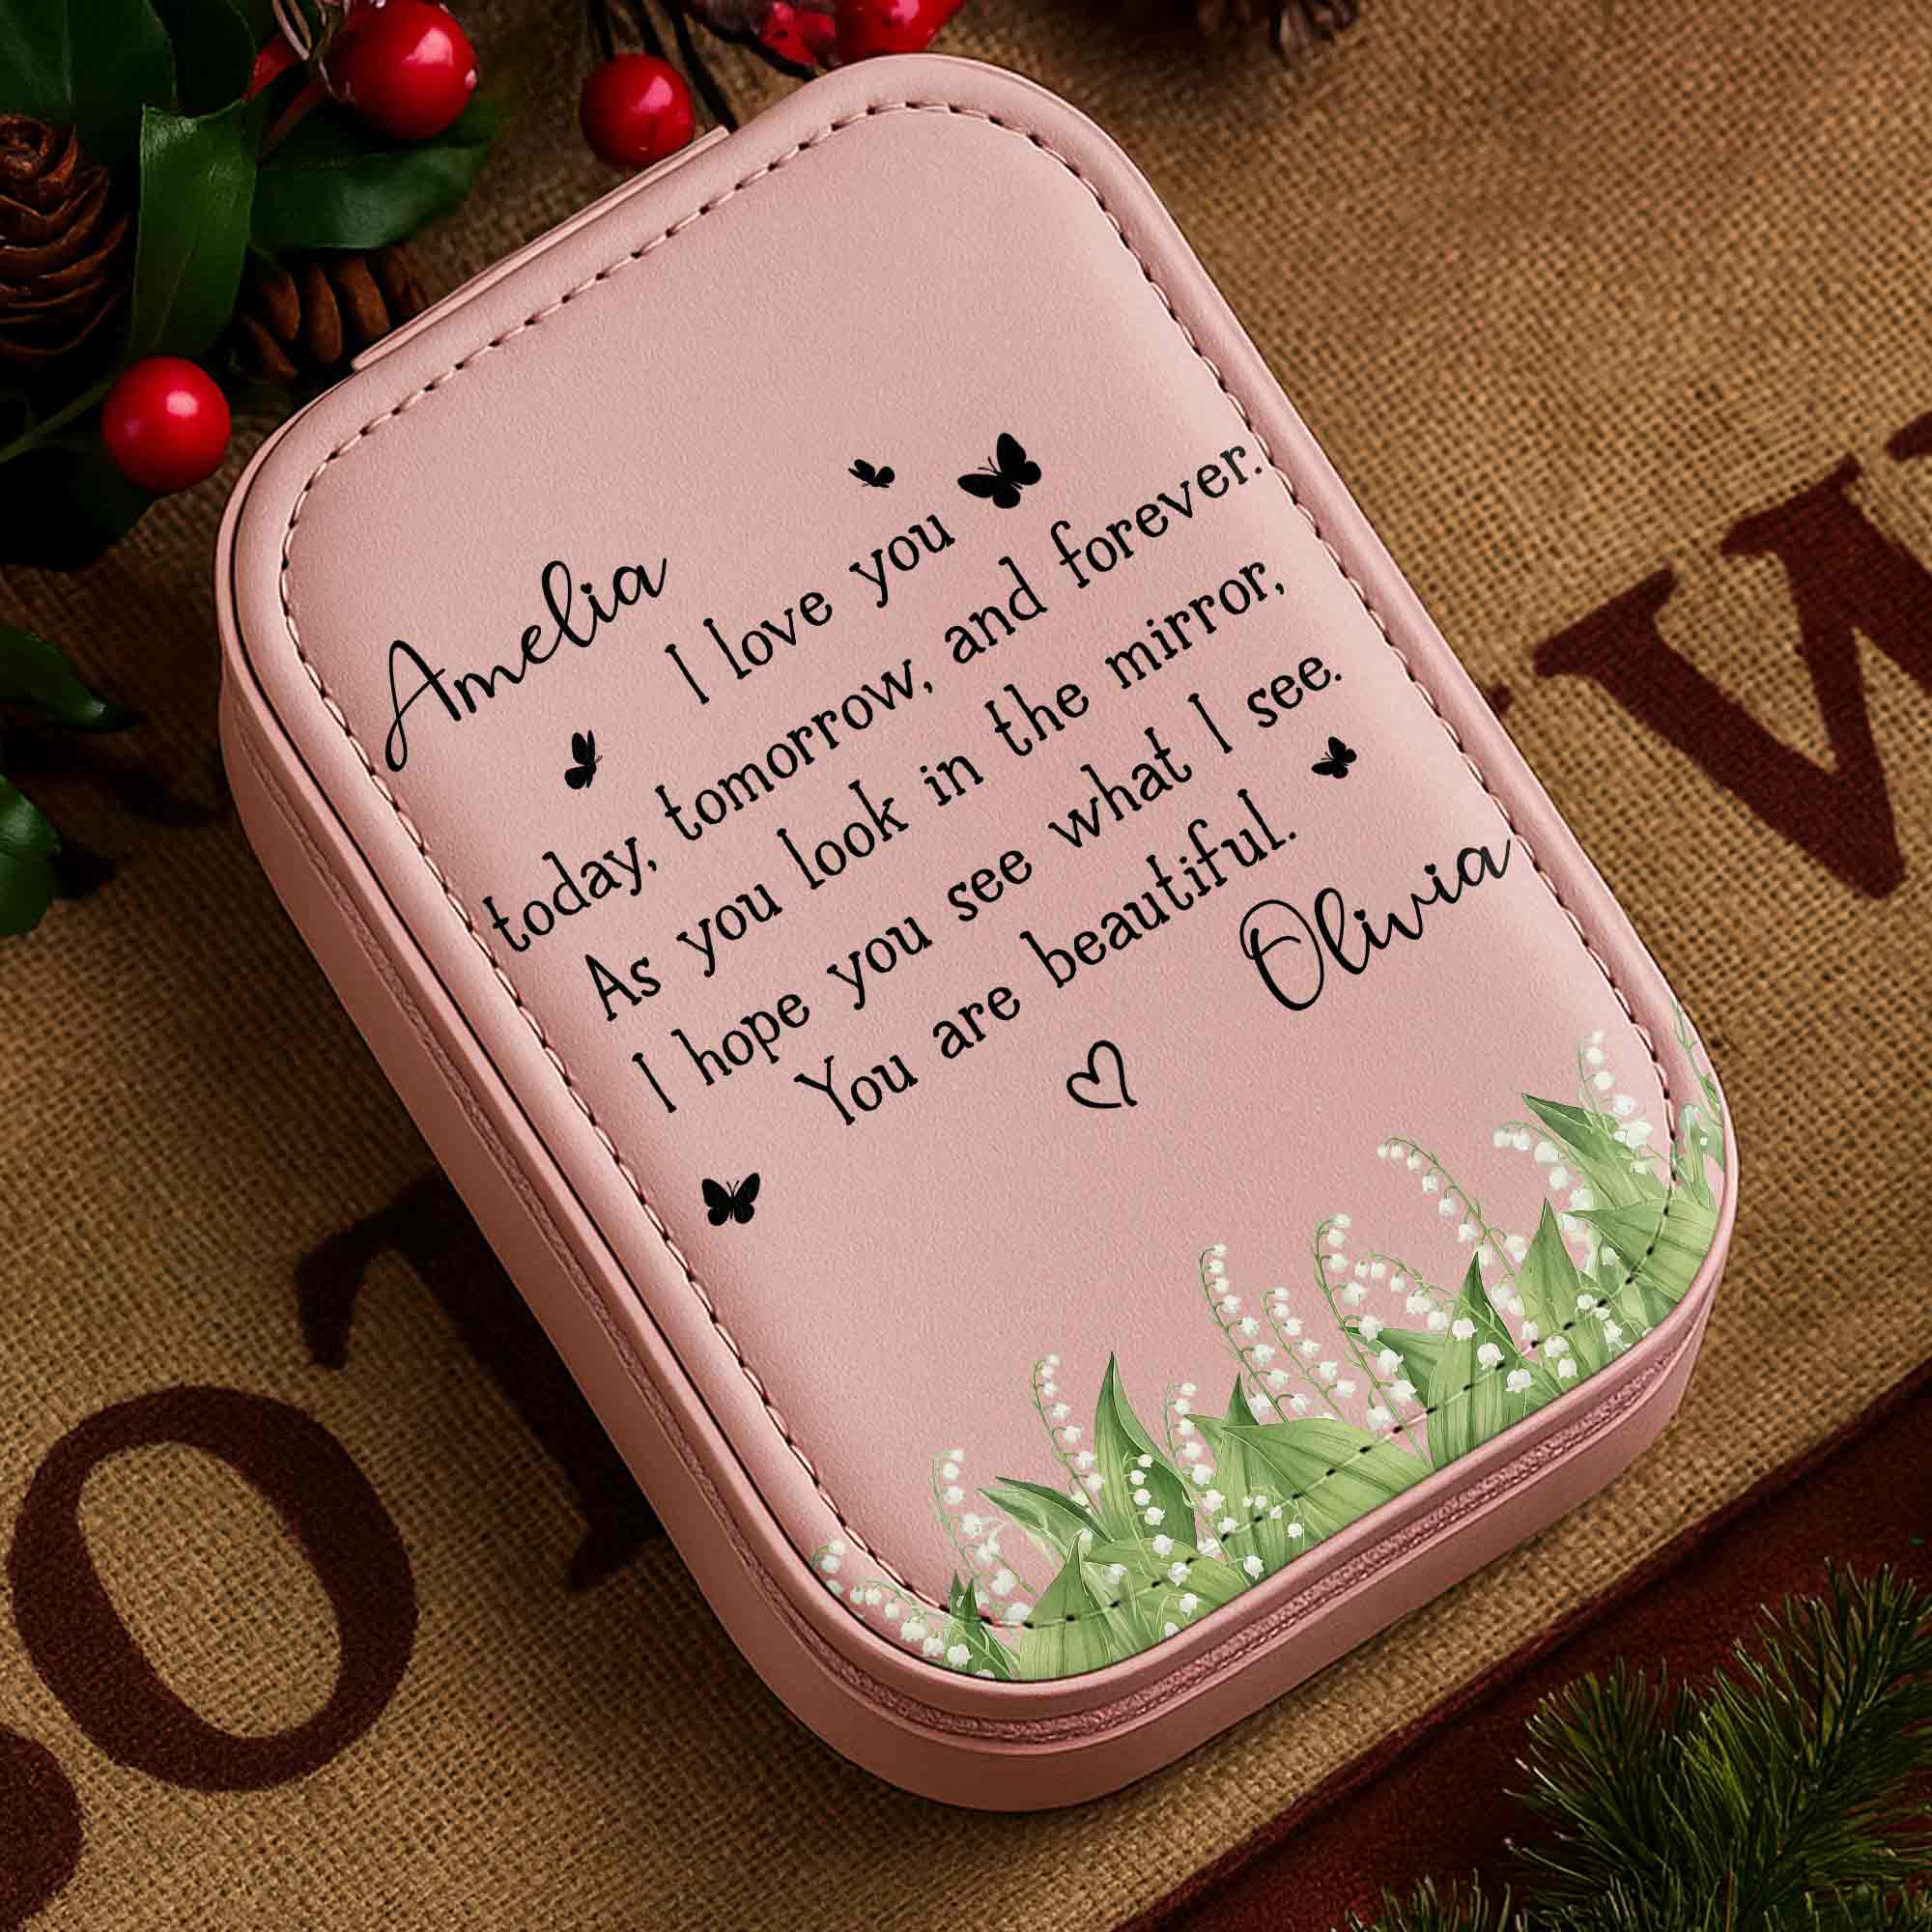 Amelia
I love you
today, tomorrow, and forever.
As you look in the mirror,
I hope you see what I see.
You are beautiful.
Olivia